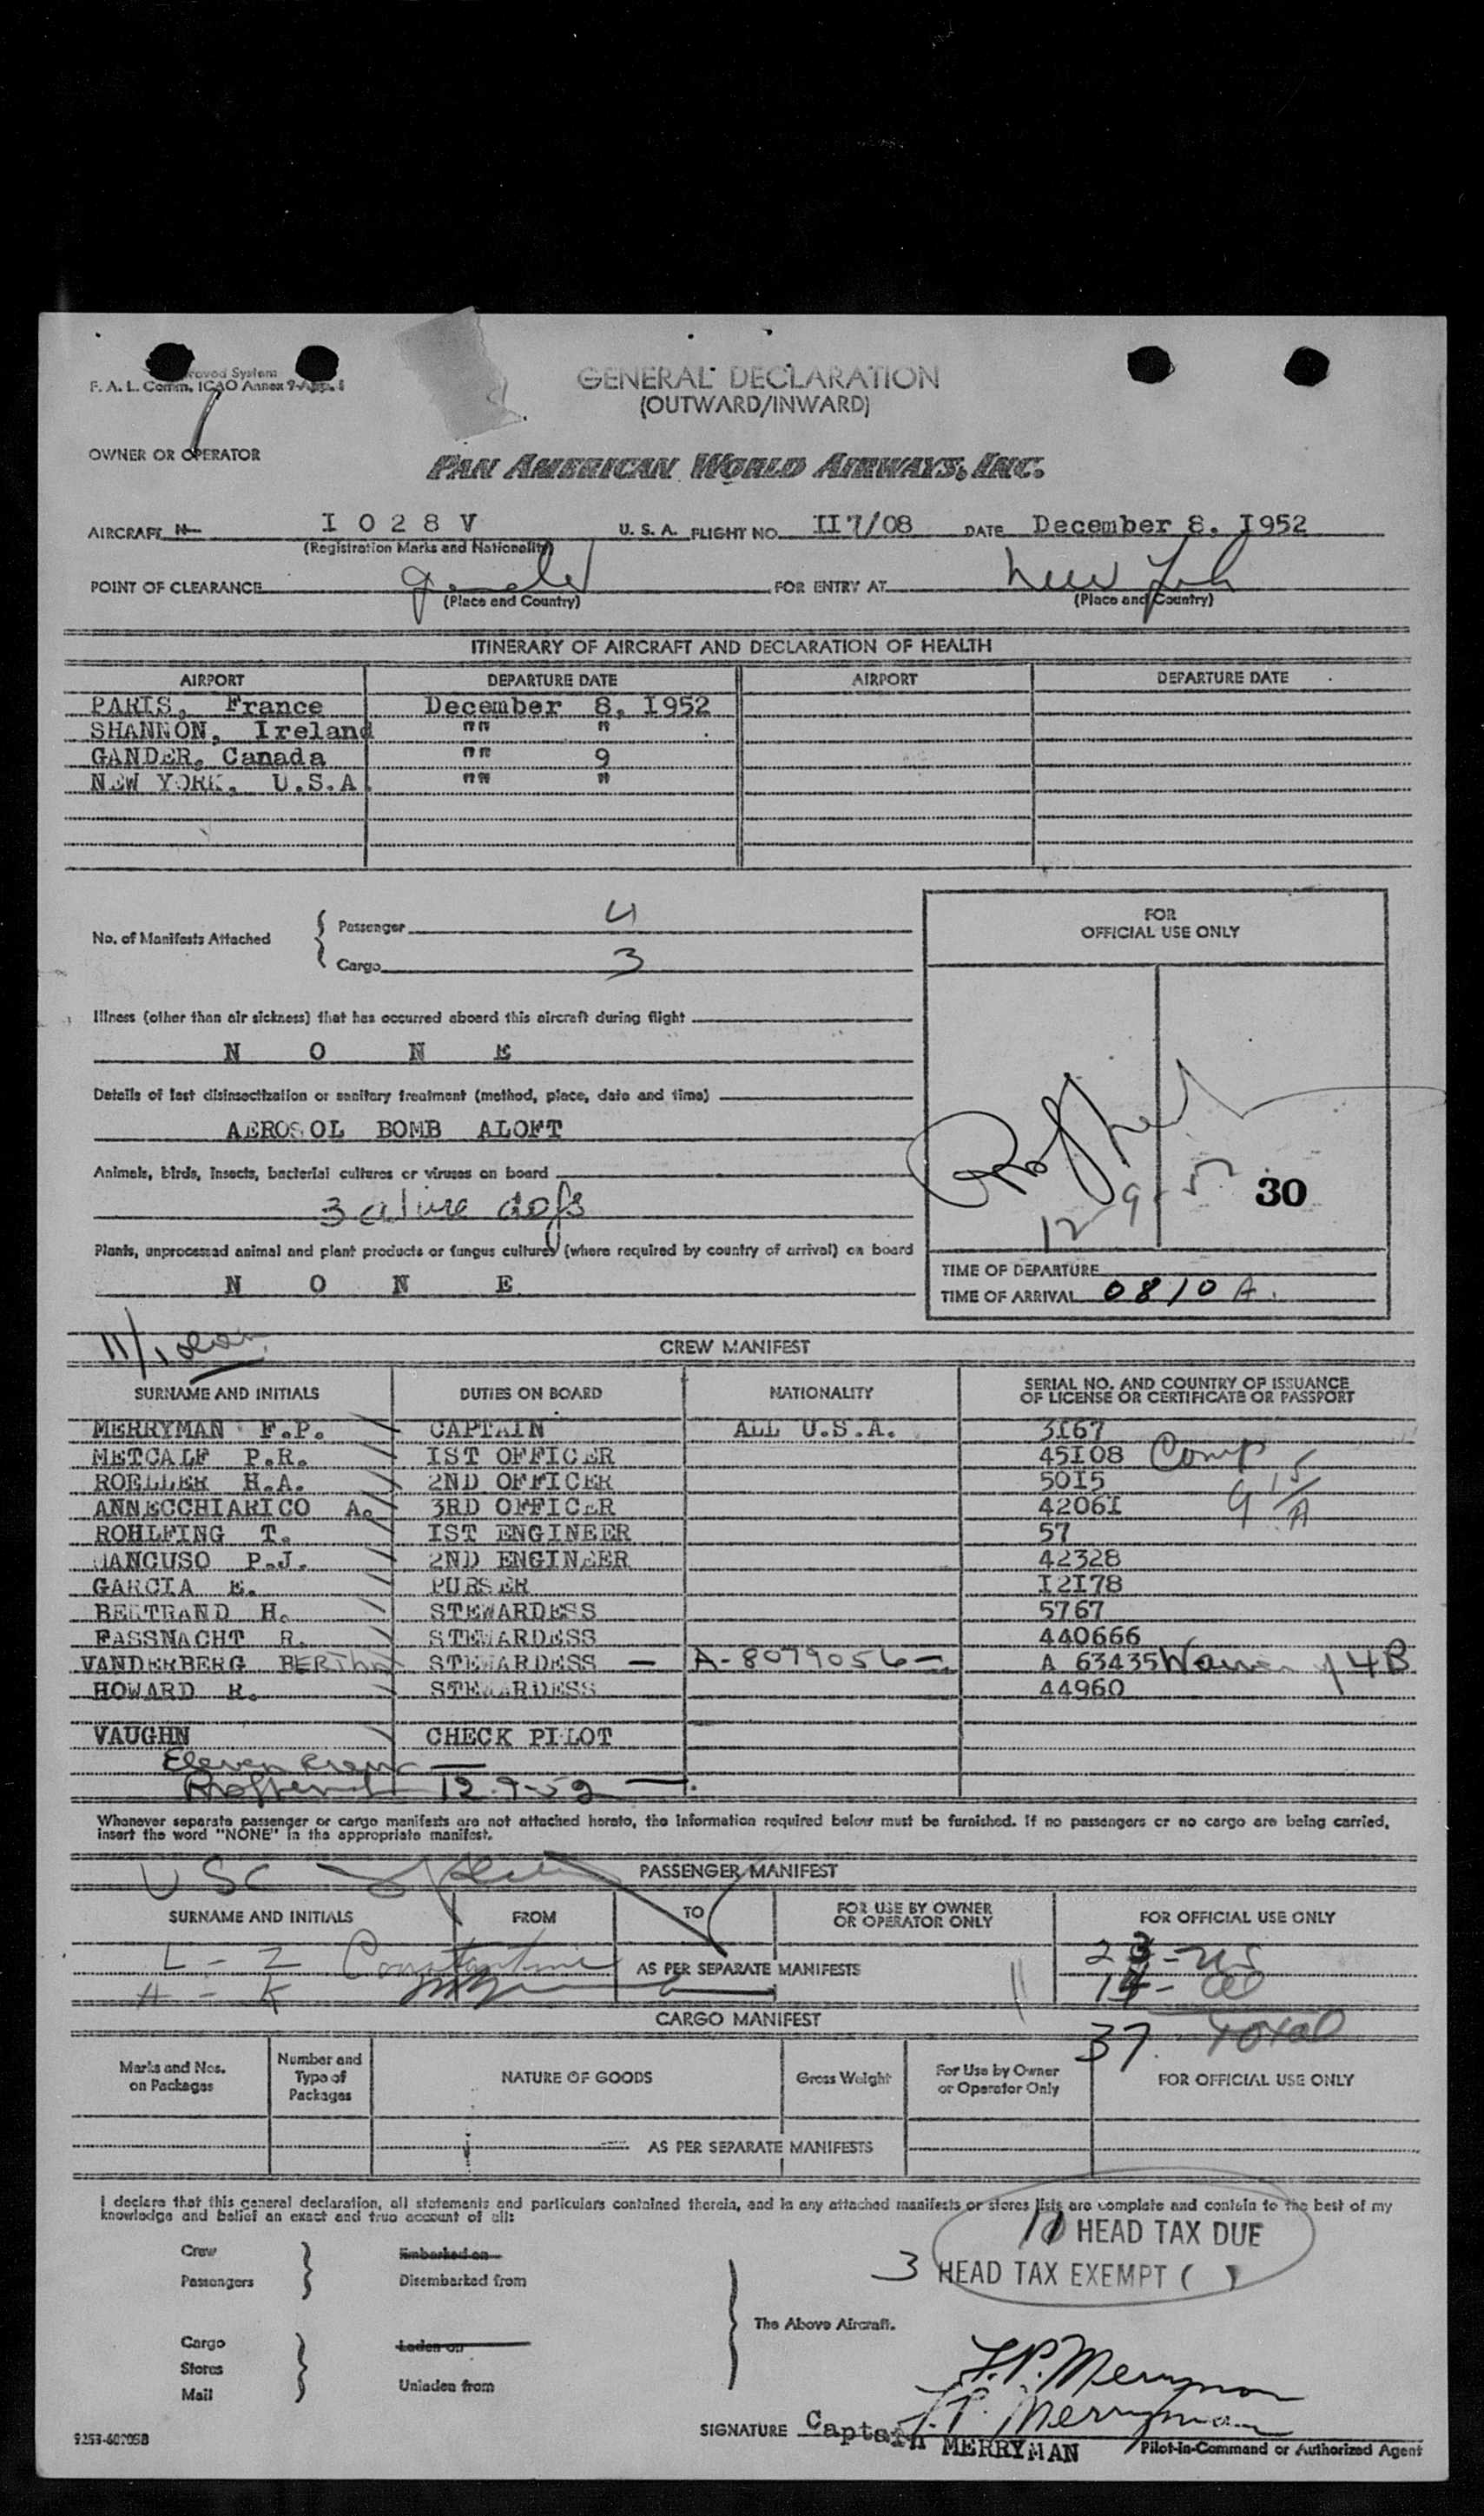 roved System
F. A. L. Comm. ICAO Annex 9-App. 1
GENERAL DECLARATION
(OUTWARD/INWARD)
OWNER OR OPERATOR
PAN AMERICAN WORLD AIRWAYS, INC.
AIRCRAFT N I 0 2 8 V U. S. A. FLIGHT NO. II7/08 DATE December 8, I952
(Registration Marks and Nationality)
POINT OF CLEARANCE Gander FOR ENTRY AT New York
(Place and Country) (Place and Country)
ITINERARY OF AIRCRAFT AND DECLARATION OF HEALTH
AIRPORT DEPARTURE DATE AIRPORT DEPARTURE DATE
PARIS, France December 8, I952
SHANNON, Ireland "" "
GANDER, Canada "" 9
NEW YORK, U.S.A. "" "
No. of Manifests Attached
Passenger 4
Cargo 3
FOR
OFFICIAL USE ONLY
Illness (other than air sickness) that has occurred aboard this aircraft during flight
N O N E
Details of last disinsectization or sanitary treatment (method, place, date and time)
AEROSOL BOMB ALOFT
Animals, birds, insects, bacterial cultures or viruses on board
3 alive dogs
12-9-5
30
Plants, unprocessed animal and plant products or fungus cultures (where required by country of arrival) on board
N O N E
TIME OF DEPARTURE
TIME OF ARRIVAL 0810 A.
11/1
CREW MANIFEST
SURNAME AND INITIALS DUTIES ON BOARD NATIONALITY SERIAL NO. AND COUNTRY OF ISSUANCE
OF LICENSE OR CERTIFICATE OR PASSPORT
MERRYMAN F.P. CAPTAIN ALL U.S.A. 3I67
METCALF P.R. IST OFFICER 45I08 Comp
ROELLER H.A. 2ND OFFICER 50I5
ANNECCHIARICO A. 3RD OFFICER 4206I 9 15/A
ROHLFING T. IST ENGINEER 57
MANCUSO P.J. 2ND ENGINEER 42328
GARCIA E. PURSER I2I78
BERTRAND H. STEWARDESS 5767
FASSNACHT R. STEWARDESS 440666
VANDERBERG BERTHA STEWARDESS — A-8079056 — A 63435 4B
HOWARD R. STEWARDESS 44960
VAUGHN CHECK PILOT
Eleven crew —
12-9-52 —
Whenever separate passenger or cargo manifests are not attached hereto, the information required below must be furnished. If no passengers or no cargo are being carried,
insert the word "NONE" in the appropriate manifest.
USC
PASSENGER MANIFEST
SURNAME AND INITIALS FROM TO FOR USE BY OWNER
OR OPERATOR ONLY FOR OFFICIAL USE ONLY
L - Z Constantine 23 - US
AS PER SEPARATE MANIFESTS
A - K 14 -
CARGO MANIFEST
37 Total
Marks and Nos.
on Packages
Number and
Type of
Packages
NATURE OF GOODS Gross Weight
For Use by Owner
or Operator Only
FOR OFFICIAL USE ONLY
AS PER SEPARATE MANIFESTS
I declare that this general declaration, all statements and particulars contained therein, and in any attached manifests or stores lists are complete and contain to the best of my
knowledge and belief an exact and true account of all:
11 HEAD TAX DUE
3 HEAD TAX EXEMPT ( )
Crew
Passengers
Embarked on
Disembarked from
The Above Aircraft.
Cargo
Stores
Mail
Laden on
Unladen from
F.P. Merryman
F.P. Merryman
SIGNATURE Captain MERRYMAN
Pilot-in-Command or Authorized Agent